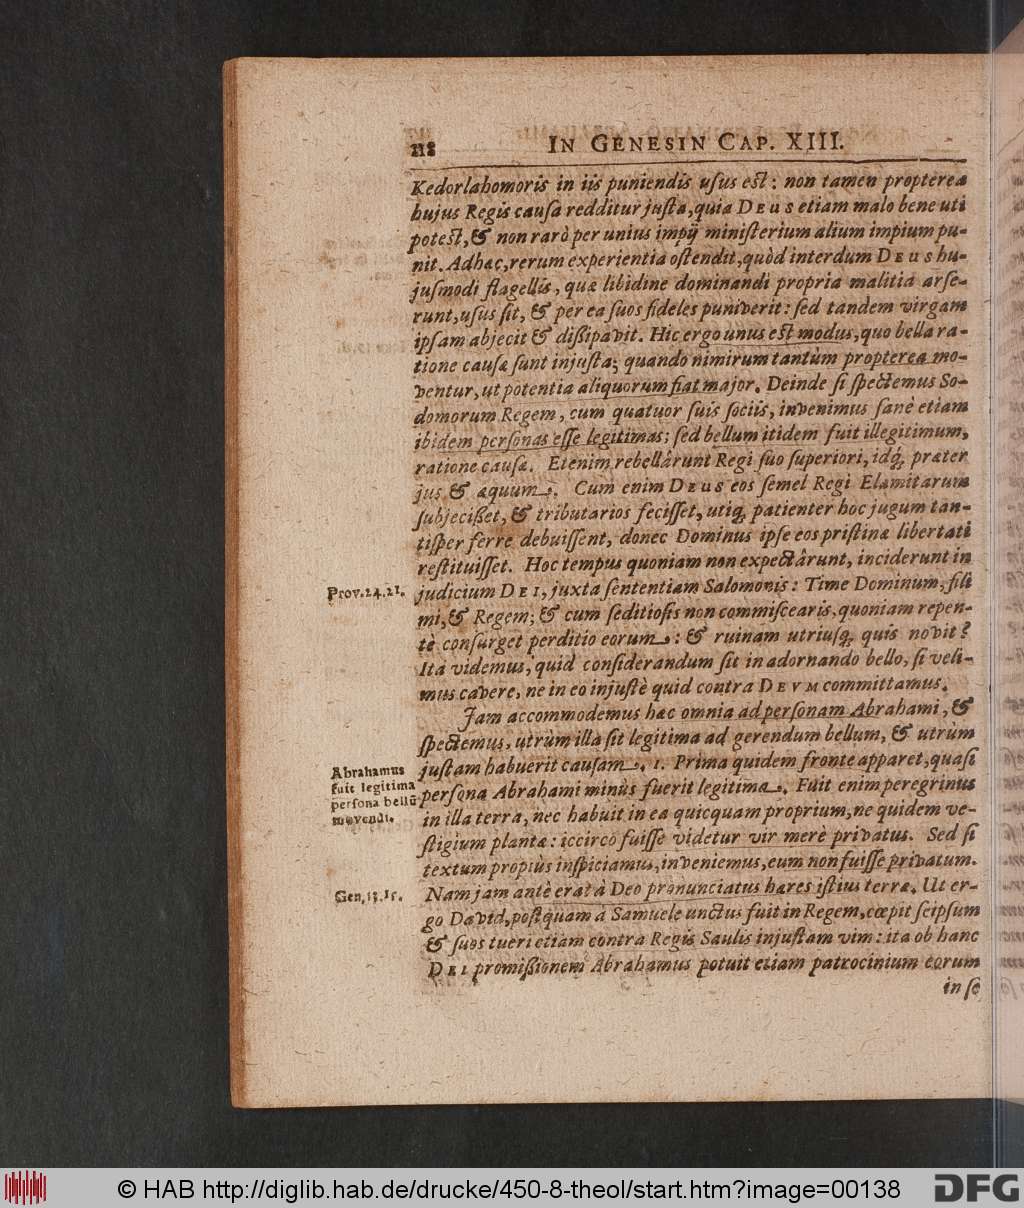 118
IN GENESIN CAP. XIII.
Kedorlahomoris in iis puniendis uſus eſt: non tamen propterea
hujus Regis cauſa redditur juſta, quia DEUS etiam malo bene uti
potest, & non rarò per unius impij miniſterium alium impium pu-
nit. Adhæc, rerum experientia oſtendit, quòd interdum DEUS hu-
juſmodi flagellis, quæ libidine dominandi propria malitia arſe-
runt, uſus ſit, & per ea ſuos fideles puniverit: ſed tandem virgam
ipſam abjecit & dißipavit. Hic ergo unus est modus, quo bella ra-
tione cauſæ ſunt injuſta; quando nimirum tantùm propterea mo-
ventur, ut potentia aliquorum fiat major. Deinde ſi ſpectemus So-
domorum Regem, cum quatuor ſuis ſociis, invenimus ſanè etiam
ibidem perſonas eſſe legitimas; ſed bellum itidem fuit illegitimum,
ratione cauſæ. Etenim rebellârunt Regi ſuo ſuperiori, idq́; præter
jus & æquum. Cum enim DEUS eos ſemel Regi Elamitarum
ſubjecißet, & tributarios feciſſet, utiq; patienter hoc jugum tan-
tiſper ferre debuiſſent, donec Dominus ipſe eos priſtinæ libertati
reſtituiſſet. Hoc tempus quoniam non expectârunt, inciderunt in
Prov. 24. 21.
judicium DEI, juxta ſententiam Salomonis: Time Dominum, fili
mi, & Regem; & cum ſeditioſis non commiſcearis, quoniam repen-
tè conſurget perditio eorum: & ruinam utriuſq; quis novit?
Ita videmus, quid conſiderandum ſit in adornando bello, ſi veli-
mus cavere, ne in eo injuſtè quid contra DEVM committamus.
Jam accommodemus hæc omnia ad perſonam Abrahami, &
ſpectemus, utrùm illa ſit legitima ad gerendum bellum, & utrùm
Abrahamus
fuit legitima
perſona bellū
movendi.
juſtam habuerit cauſam. 1. Prima quidem fronte apparet, quaſi
perſona Abrahami minùs fuerit legitima. Fuit enim peregrinus
in illa terra, nec habuit in ea quicquam proprium, ne quidem ve-
ſtigium plantæ: iccircò fuiſſe videtur vir merè privatus. Sed ſi
textum propiùs inſpiciamus, inveniemus, eum non fuiſſe privatum.
Gen. 13. 15.
Nam jam antè erat à Deo pronunciatus hæres iſtius terræ. Ut er-
go David, poſtquam à Samuele unctus fuit in Regem, cœpit ſeipſum
& ſuos tueri etiam contra Regis Saulis injuſtam vim: ita ob hanc
DEI promißionem Abrahamus potuit etiam patrocinium eorum
in ſe
© HAB http://diglib.hab.de/drucke/450-8-theol/start.htm?image=00138
DFG